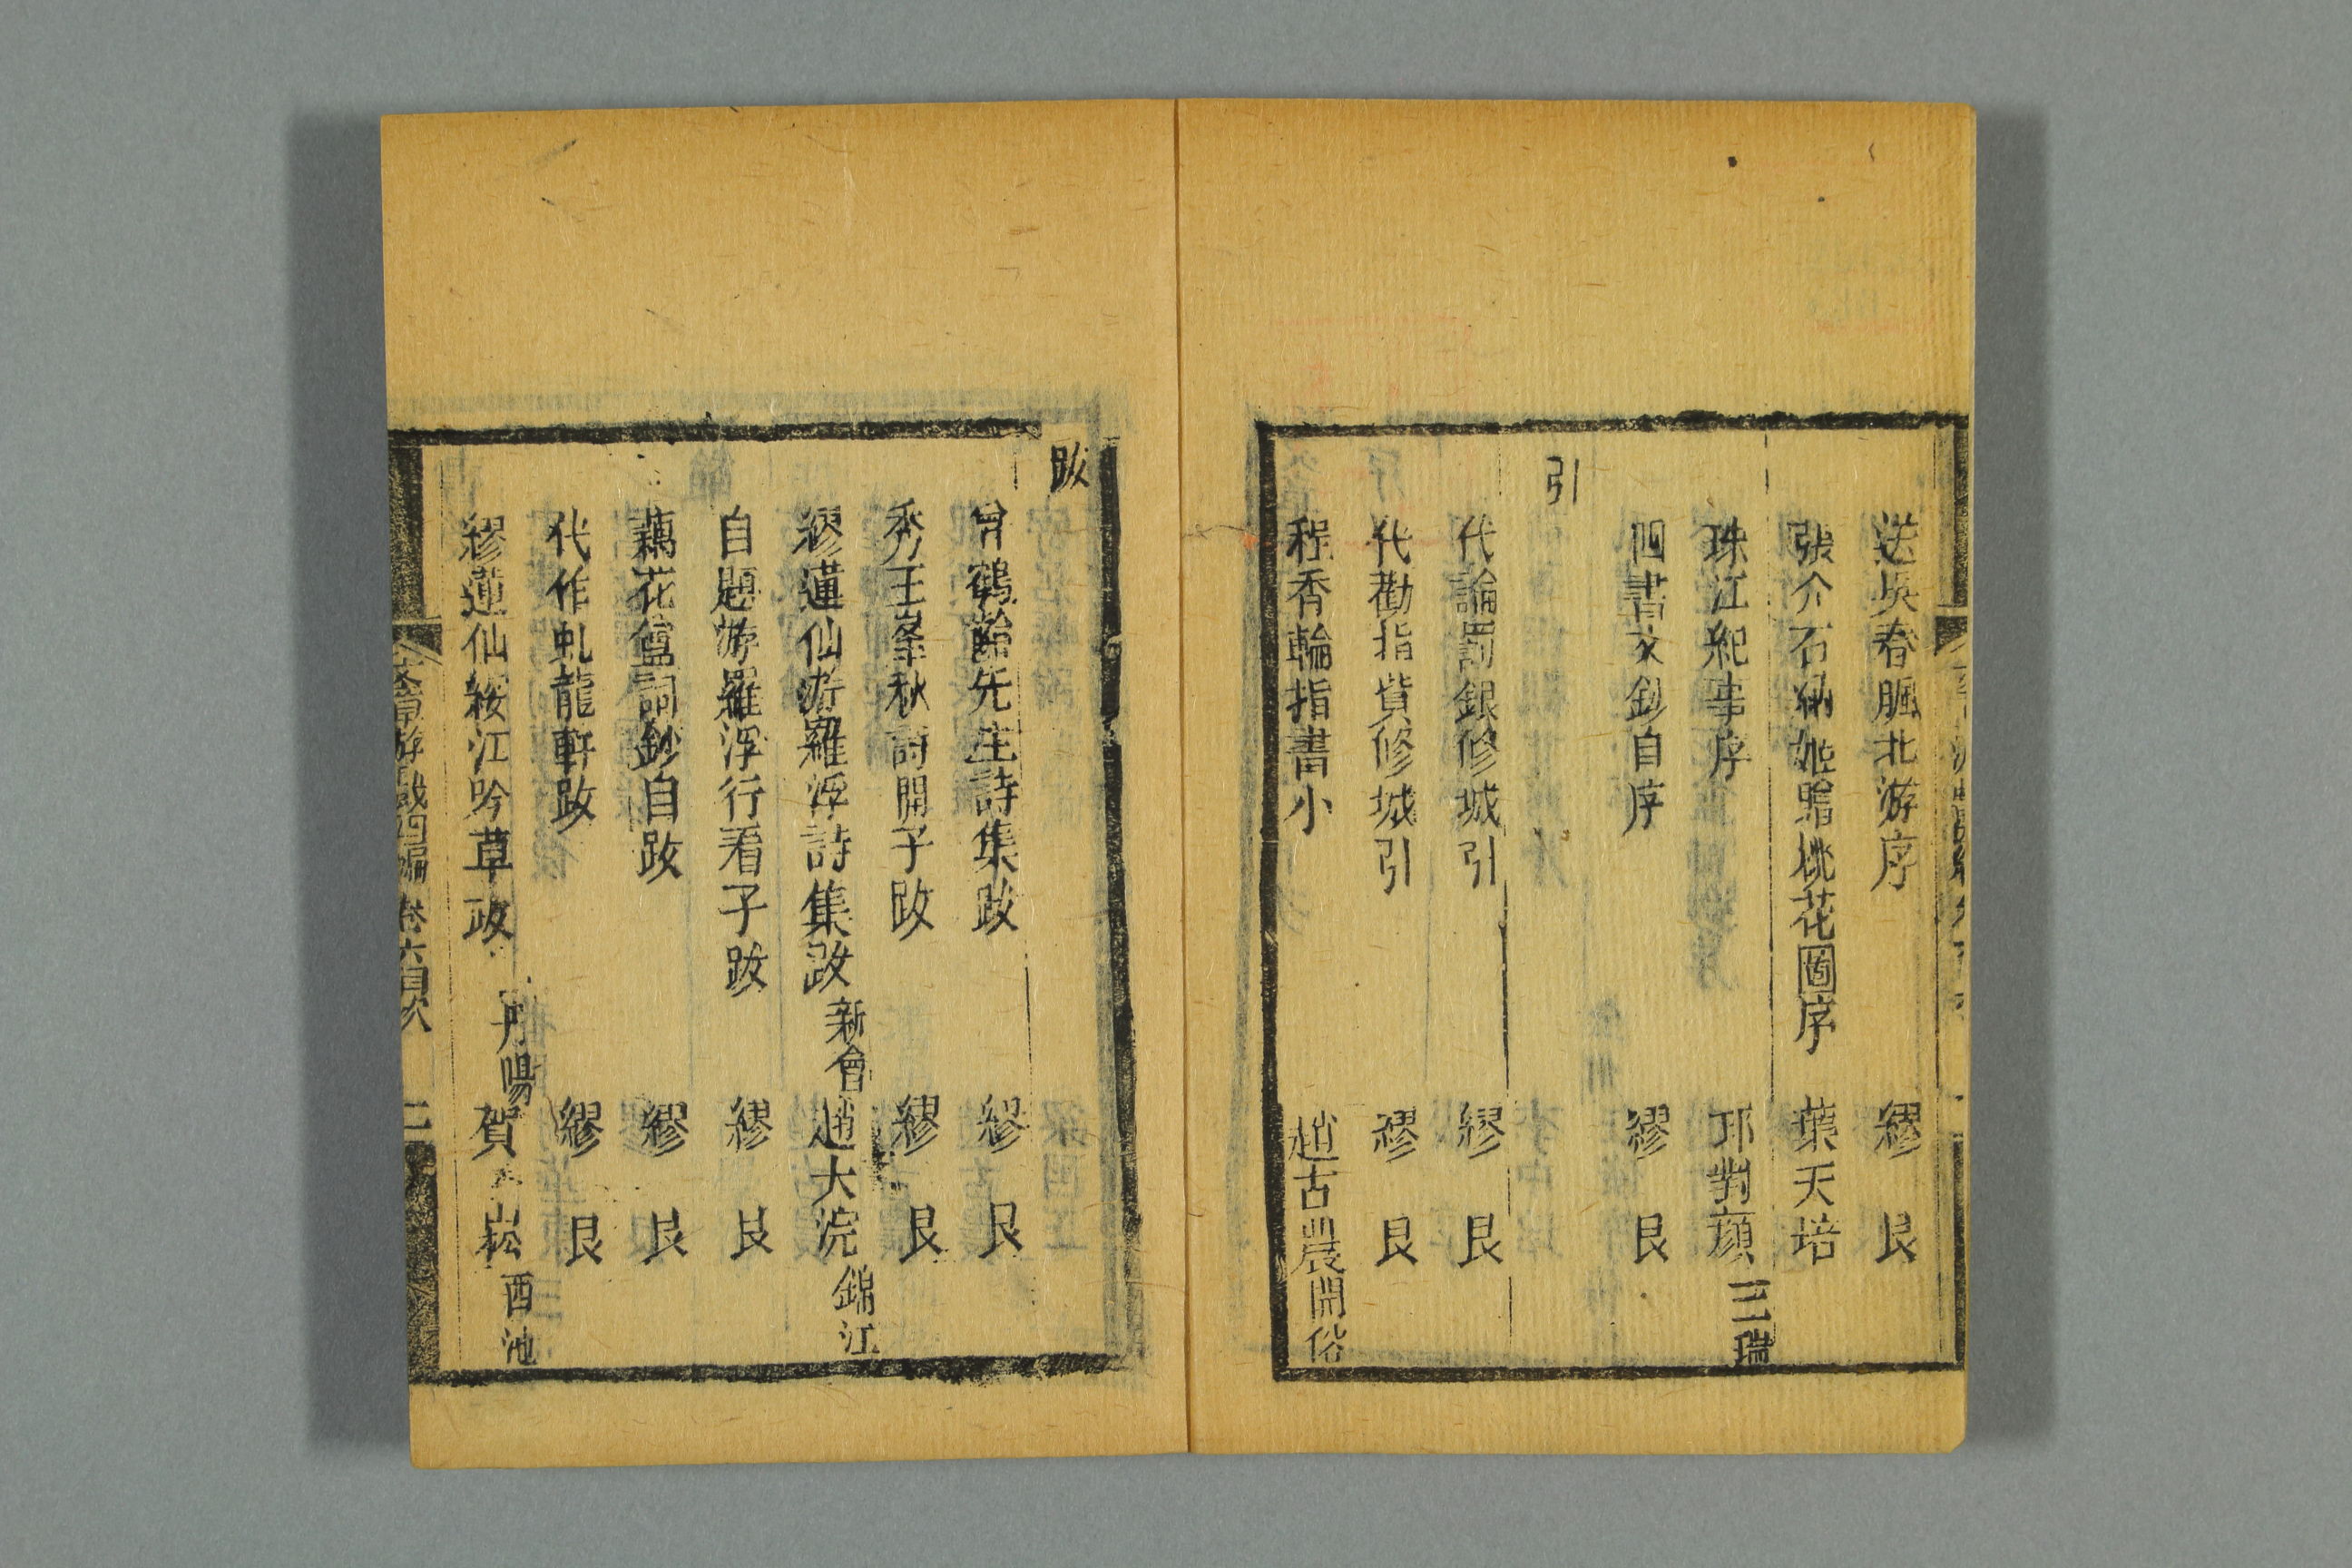 送吳春䐃北游序 繆 艮
張介石納姬贈桃花圖序 葉天培
珠江紀事序 邛對顏三瑞
四書文鈔自序 繆 艮
引
代論罰銀修城引 繆 艮
代勸指貲修城引 繆 艮
程香輪指書小 趙古農開俗
跋
曾鶴齡先生詩集跋 繆 艮
秀王峯秋詩開子跋 繆 艮
繆蓮仙游羅浮詩集跋 新會趙大浣錦江
自題游羅浮行看子跋 繆 艮
藕花盦詞鈔自跋 繆 艮
代作虬龍軒跋 繆 艮
繆蓮仙綏江吟草跋 丹陽賀 崧西池
文章游戲四編 卷六目次 二